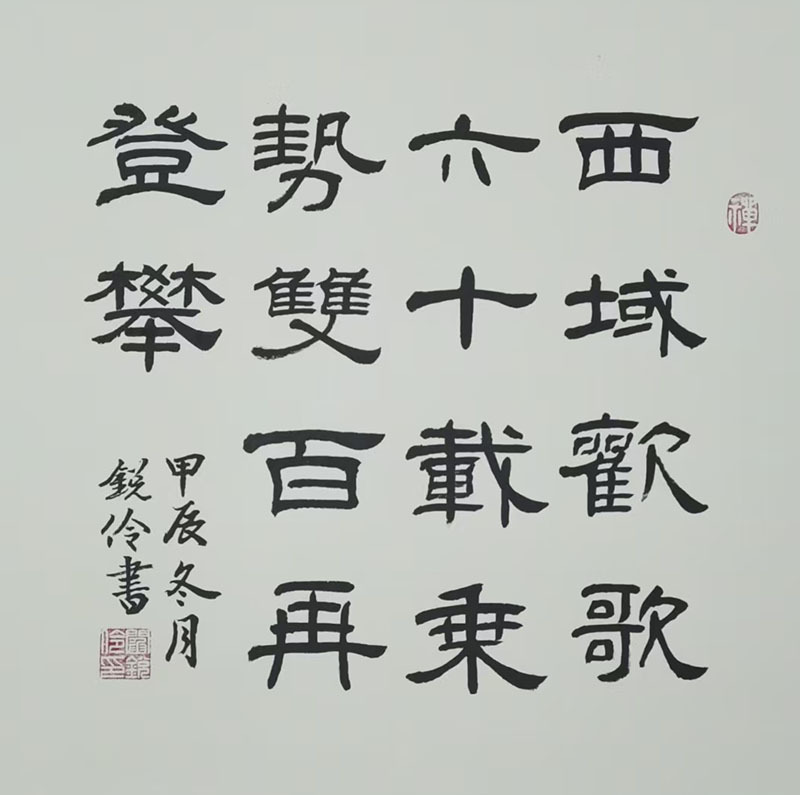 西域歡歌
六十載乗
勢雙百再
登攀
甲辰冬月
銳伶書
禪